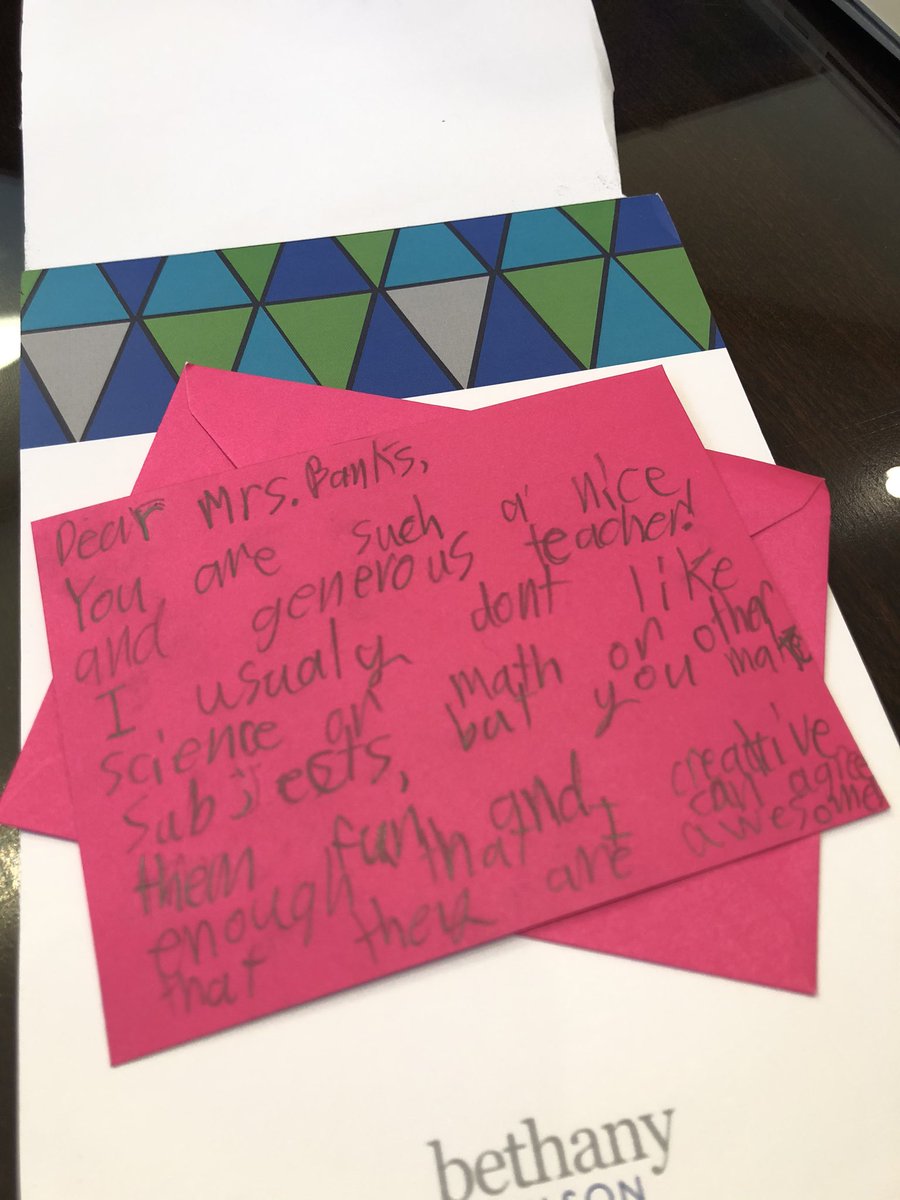 Dear Mrs. Banks,
You are such a nice
and generous teacher!
I usualy dont like
science or math or other
subjects, but you make
them fun and creative
enough that I can agree
that they are awesome
bethany